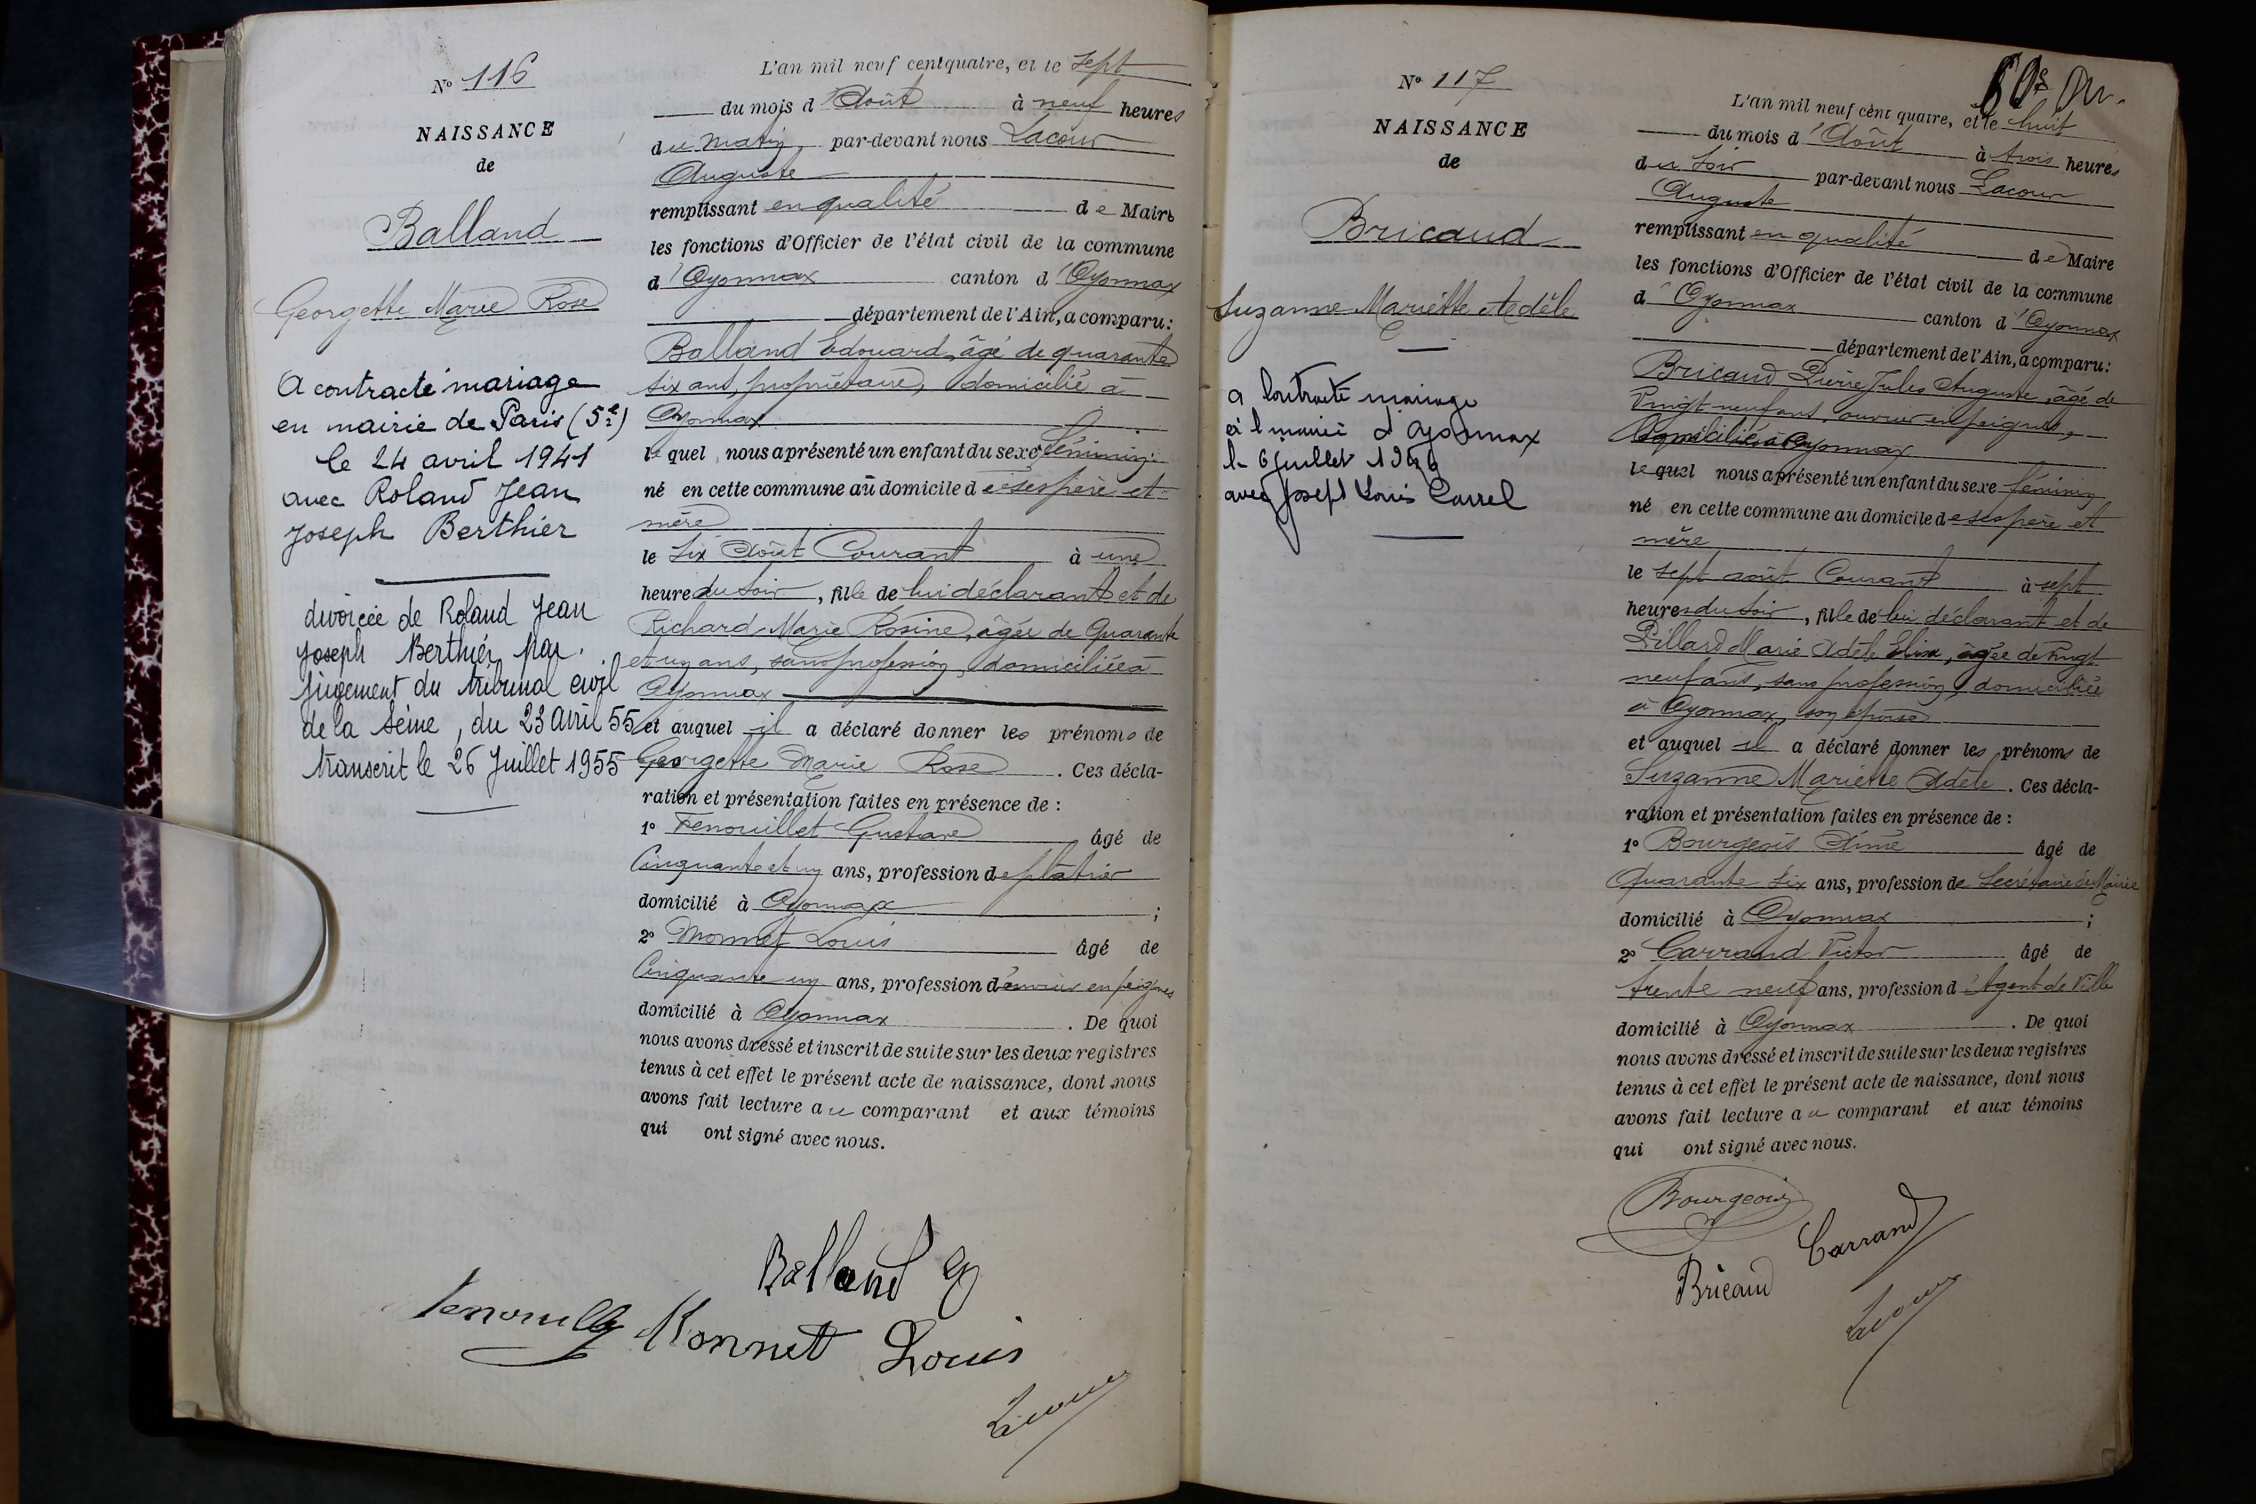 N° 116
NAISSANCE
de
Balland
Georgette Marie Rose
A contracté mariage
en mairie de Paris (5e)
le 24 avril 1941
avec Roland Jean
Joseph Berthier
divorcée de Roland Jean
Joseph Berthier par
jugement du tribunal civil
de la Seine, du 23 avril 55
transcrit le 26 Juillet 1955
L'an mil neuf cent quatre, et le sept
du mois d'Août à neuf heures
du matin, par-devant nous Lacour
Auguste
remplissant en qualité de Maire
les fonctions d'Officier de l'état civil de la commune
d'Oyonnax canton d'Oyonnax
département de l'Ain, a comparu:
Balland Edouard, âgé de quarante
six ans, propriétaire, domicilié à
Oyonnax
lequel nous a présenté un enfant du sexe féminin
né en cette commune au domicile de ses père et
mère
le six Août Courant à une
heure du soir, fille de lui déclarant et de
Richard Marie Rosine, âgée de Quarante
et un ans, sans profession, domiciliée à
Oyonnax
et auquel il a déclaré donner les prénoms de
Georgette Marie Rose. Ces décla-
ration et présentation faites en présence de :
1° Fenouillet Gustave âgé de
Cinquante et un ans, profession de plâtrier
domicilié à Oyonnax ;
2° Monnet Louis âgé de
Cinquante un ans, profession d'ouvrier en peignes
domicilié à Oyonnax. De quoi
nous avons dressé et inscrit de suite sur les deux registres
tenus à cet effet le présent acte de naissance, dont nous
avons fait lecture au comparant et aux témoins
qui ont signé avec nous.
Balland
Monnet Louis
Lacour
N° 117
NAISSANCE
de
Bricaud
Suzanne Mariette Adèle
a contracté mariage
à la mairie d'Oyonnax
avec Joseph Louis Carrel
L'an mil neuf cent quatre, et le huit
du mois d'Août à trois heures
du soir par-devant nous Lacour
Auguste
remplissant en qualité de Maire
les fonctions d'Officier de l'état civil de la commune
d'Oyonnax canton d'Oyonnax
département de l'Ain, a comparu:
Bricaud Pierre Jules Auguste, âgé de
Vingt neuf ans, ouvrier en peignes,
domicilié à Oyonnax
lequel nous a présenté un enfant du sexe féminin
né en cette commune au domicile de ses père et
mère
le sept août Courant à sept
heures du soir, fille de lui déclarant et de
Pillard Marie Adèle Elisa, âgée de Vingt
neuf ans, sans profession, domiciliée
à Oyonnax, son épouse
et auquel il a déclaré donner les prénoms de
Suzanne Mariette Adèle. Ces décla-
ration et présentation faites en présence de :
1° Bourgeois Aimé âgé de
Quarante six ans, profession de Secrétaire de Mairie
domicilié à Oyonnax ;
2° Carrand Victor âgé de
trente neuf ans, profession d'Agent de Ville
domicilié à Oyonnax. De quoi
nous avons dressé et inscrit de suite sur les deux registres
tenus à cet effet le présent acte de naissance, dont nous
avons fait lecture au comparant et aux témoins
qui ont signé avec nous.
Bourgeois
Carrand
Bricaud
Lacour